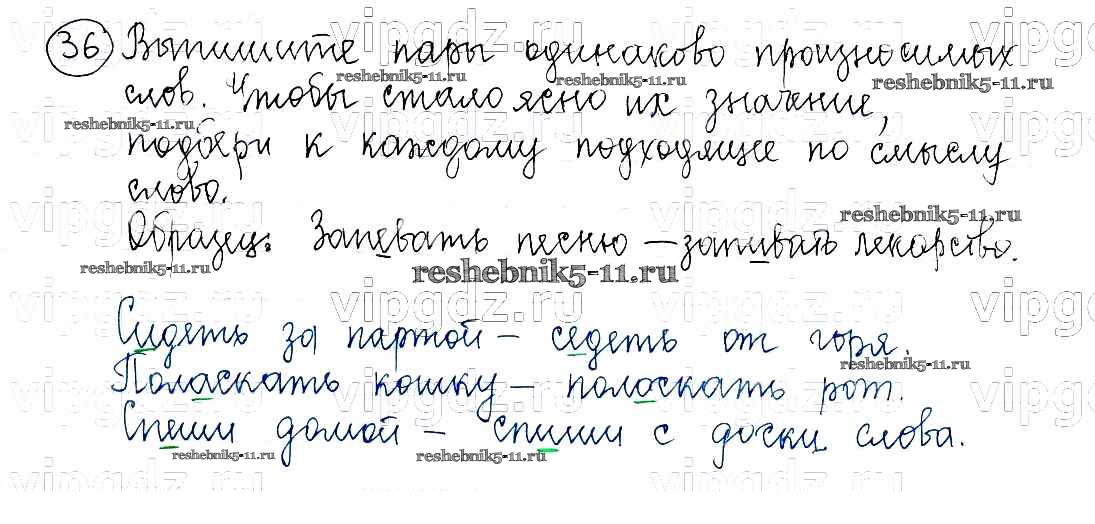 36 Выпишите пары одинаково произносимых
слов. Чтобы стало ясно их значение,
подбери к каждому подходящее по смыслу
слово.
Образец: Запевать песню – запивать лекарство.
Сидеть за партой – седеть от горя.
Поласкать кошку – полоскать рот.
Спеши домой – спиши с доски слова.
vipgdz.ru
reshebnik5-11.ru